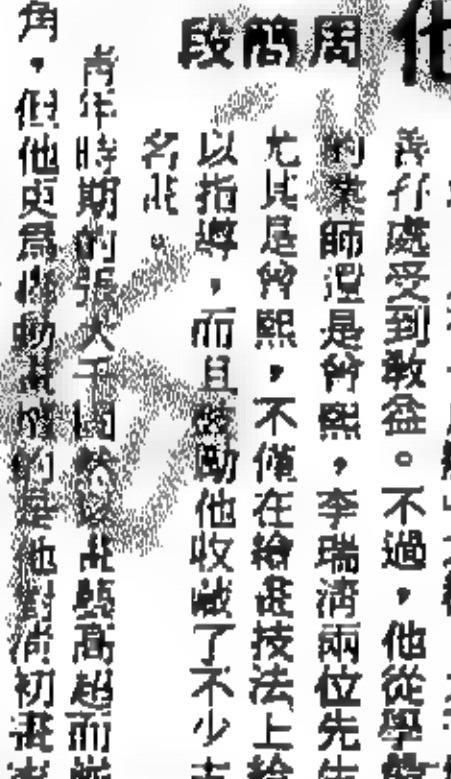 周簡段
他
處受到教益。不過，他從學
的業師還是曾熙，李瑞清兩位先生
尤其是曾熙，不僅在繪畫技法上給
以指導，而且鼓勵他收藏了不少
名畫。
青年時期的張大千固然以畫藝高超而
角，但他更為的是他對清初畫